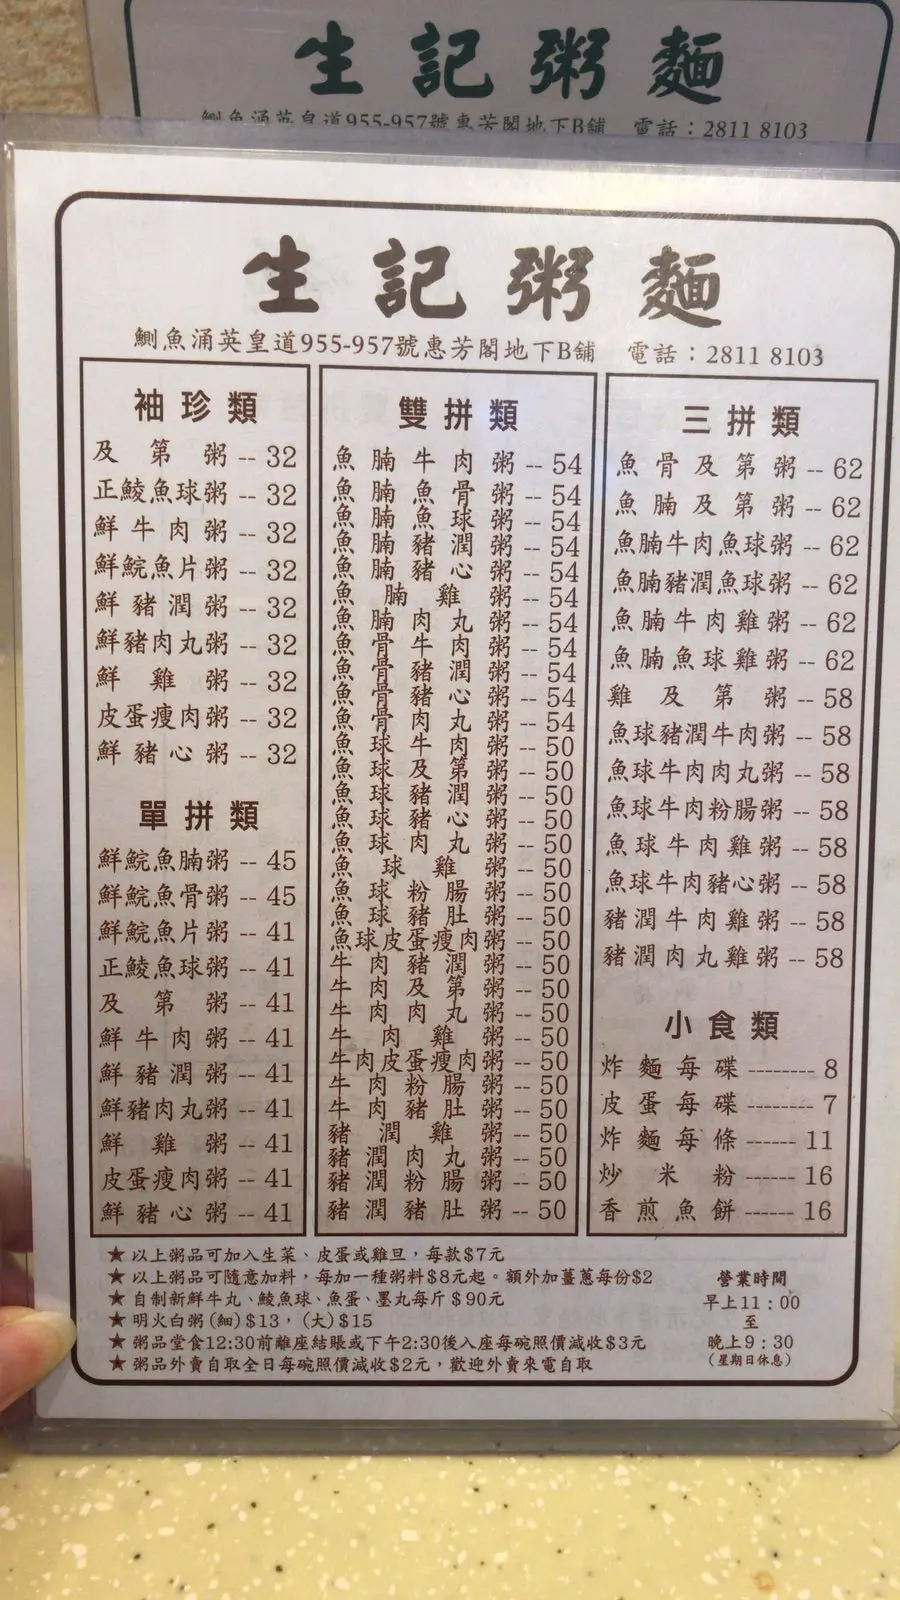 生記粥麵
鰂魚涌英皇道955-957號惠芳閣地下B舖 電話：2811 8103
生記粥麵
鰂魚涌英皇道955-957號惠芳閣地下B舖 電話：2811 8103
袖珍類
及第粥 -- 32
正鯪魚球粥 -- 32
鮮牛肉粥 -- 32
鮮鯇魚片粥 -- 32
鮮豬潤粥 -- 32
鮮豬肉丸粥 -- 32
鮮雞粥 -- 32
皮蛋瘦肉粥 -- 32
鮮豬心粥 -- 32
單拼類
鮮鯇魚腩粥 -- 45
鮮鯇魚骨粥 -- 45
鮮鯇魚片粥 -- 41
正鯪魚球粥 -- 41
及第粥 -- 41
鮮牛肉粥 -- 41
鮮豬潤粥 -- 41
鮮豬肉丸粥 -- 41
鮮雞粥 -- 41
皮蛋瘦肉粥 -- 41
鮮豬心粥 -- 41
雙拼類
魚腩牛肉粥 -- 54
魚腩魚骨粥 -- 54
魚腩魚球粥 -- 54
魚腩豬潤粥 -- 54
魚腩豬心粥 -- 54
魚腩雞粥 -- 54
魚腩肉丸粥 -- 54
魚骨牛肉粥 -- 54
魚骨豬潤粥 -- 54
魚骨豬心粥 -- 54
魚骨肉丸粥 -- 54
魚球牛肉粥 -- 50
魚球及第粥 -- 50
魚球豬潤粥 -- 50
魚球豬心粥 -- 50
魚球肉丸粥 -- 50
魚球雞粥 -- 50
魚球粉腸粥 -- 50
魚球豬肚粥 -- 50
魚球皮蛋瘦肉粥 -- 50
牛肉豬潤粥 -- 50
牛肉及第粥 -- 50
牛肉肉丸粥 -- 50
牛肉雞粥 -- 50
牛肉皮蛋瘦肉粥 -- 50
牛肉粉腸粥 -- 50
牛肉豬肚粥 -- 50
豬潤雞粥 -- 50
豬潤肉丸粥 -- 50
豬潤粉腸粥 -- 50
豬潤豬肚粥 -- 50
三拼類
魚骨及第粥 -- 62
魚腩及第粥 -- 62
魚腩牛肉魚球粥 -- 62
魚腩豬潤魚球粥 -- 62
魚腩牛肉雞粥 -- 62
魚腩魚球雞粥 -- 62
雞及第粥 -- 58
魚球豬潤牛肉粥 -- 58
魚球牛肉肉丸粥 -- 58
魚球牛肉粉腸粥 -- 58
魚球牛肉雞粥 -- 58
魚球牛肉豬心粥 -- 58
豬潤牛肉雞粥 -- 58
豬潤肉丸雞粥 -- 58
小食類
炸麵每碟 -------- 8
皮蛋每碟 -------- 7
炸麵每條 ------ 11
炒米粉 ------ 16
香煎魚餅 ------ 16
★以上粥品可加入生菜、皮蛋或雞旦，每款$7元
★以上粥品可隨意加料，每加一種粥料$8元起。額外加薑蔥每份$2
★自制新鮮牛丸、鯪魚球、魚蛋、墨丸每斤＄90元
★明火白粥(細)＄13，(大)＄15
★粥品堂食12:30前離座結賬或下午2:30後入座每碗照價減收$3元
★粥品外賣自取全日每碗照價減收$2元，歡迎外賣來電自取
營業時間
早上11：00
至
晚上9：30
(星期日休息)